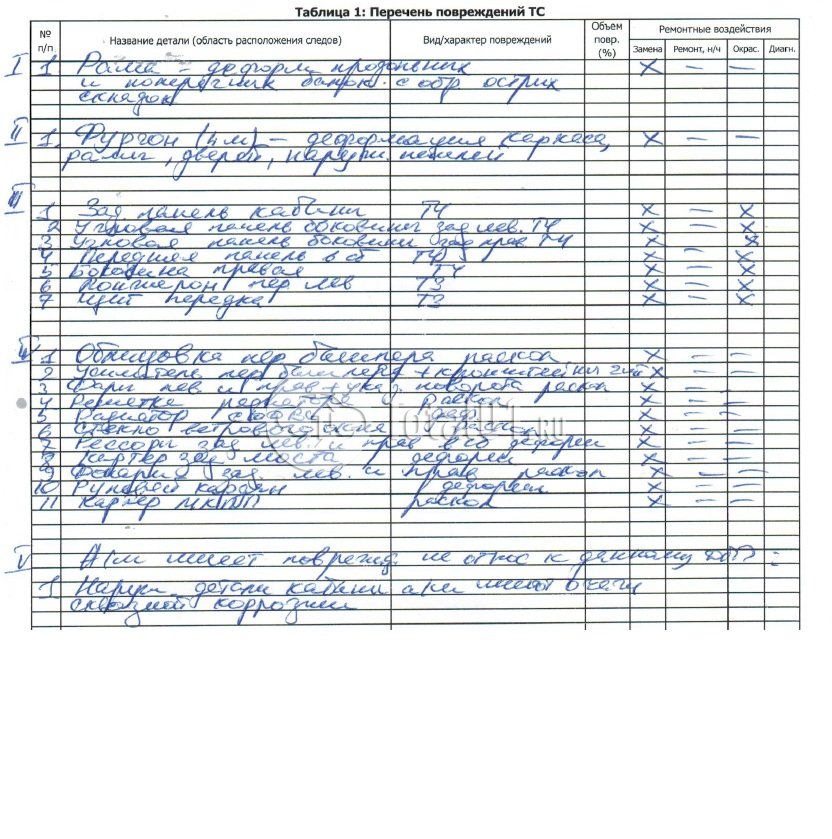 Таблица 1: Перечень повреждений ТС
№ п/п Название детали (область расположения следов) Вид/характер повреждений Объем повр. (%) Ремонтные воздействия
Замена Ремонт, н/ч Окрас. Диагн.
I 1 Рама – деформ продольных X — —
и попереч. балок с обр острых
складок
II 1 Фургон (4м) – деформация каркаса, X — —
дверей, наружн. панелей
III
1 Зад панель кабины Т4 X — X
2 Угловая панель боковины зад лев. Т4 X — X
3 Угловая панель боковины зад прав Т4 X — X
4 Передняя панель в сб Т4 X — X
5 Боковина правая Т4 X — X
6 Лонжерон пер лев Т3 X — X
7 Щит передка Т3 X — X
IV 1 Облицовка пер бампера раскол X — —
2 Усилитель пер бампера + кронштейны X — —
3 Фары лев и прав + указ. поворота раскол X — —
4 Решетка радиатора раскол X — —
5 Радиатор деф X — —
6 Стекло ветровое X — —
7 Рессоры зад лев. и прав в сб деформ X — —
8 Картер зад моста деформ X — —
9 Фонари зад. лев. и прав раскол X — —
10 деформ. X — —
11 Картер МКПП раскол X — —
V А/м имеет поврежд. не относ к данному ДТП :
1 Наруж. детали кабины а/м имеют очаги
сквозной коррозии